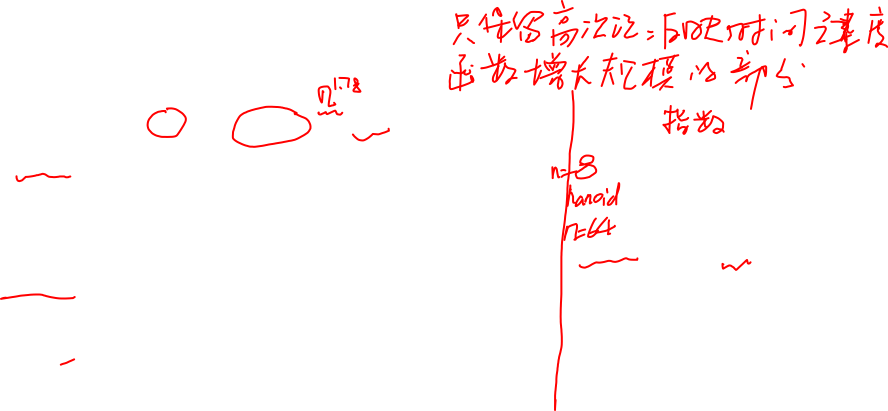 只保留高次论:反映时间速度
函数增长规模的部分
指数
n^1.78
n=8
hanoid
n=64